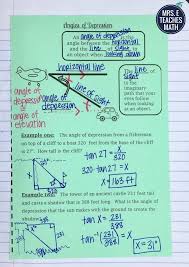 MRS. E
TEACHES
MATH
Angles of Depression
An angle of depression is the
angle between the horizontal
and the line of sight to
an object when looking down.
horizontal line
line of
sight
angle of
depression
angle of
depression
line of sight
angle of
elevation
line of
sight
is the
imaginary
path that your
eyes follow
when looking
at an object.
Example one: The angle of depression from a fisherman
on top of a cliff to a boat 320 feet from the base of the cliff
is 27°. How tall is the cliff?
tan 27 = x/320
320 · tan 27 = x
x ≈ 163 ft
Example two: The tower of an ancient castle 231 feet tall
and casts a shadow that is 388 feet long. What is the angle of
depression that the sun makes with the ground to create the
shadow?
tan x = 231/388
tan⁻¹(231/388) = x
x = 31°